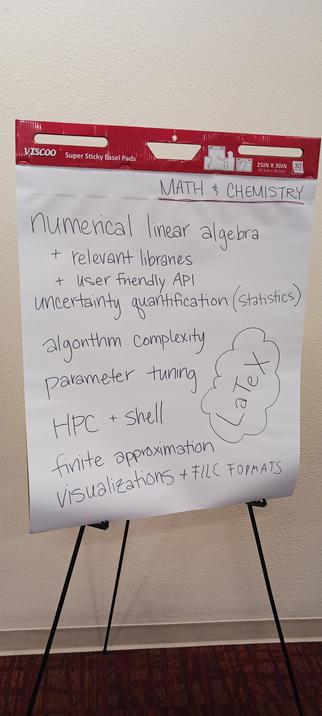 VISCOO Super Sticky Easel Pads 25IN X 30IN 30
MATH & CHEMISTRY
numerical linear algebra
+ relevant libraries
+ user friendly API
uncertainty quantification (statistics)
algorithm complexity
parameter tuning
LaTeX
HPC + shell
finite approximation
visualizations + FILE FORMATS